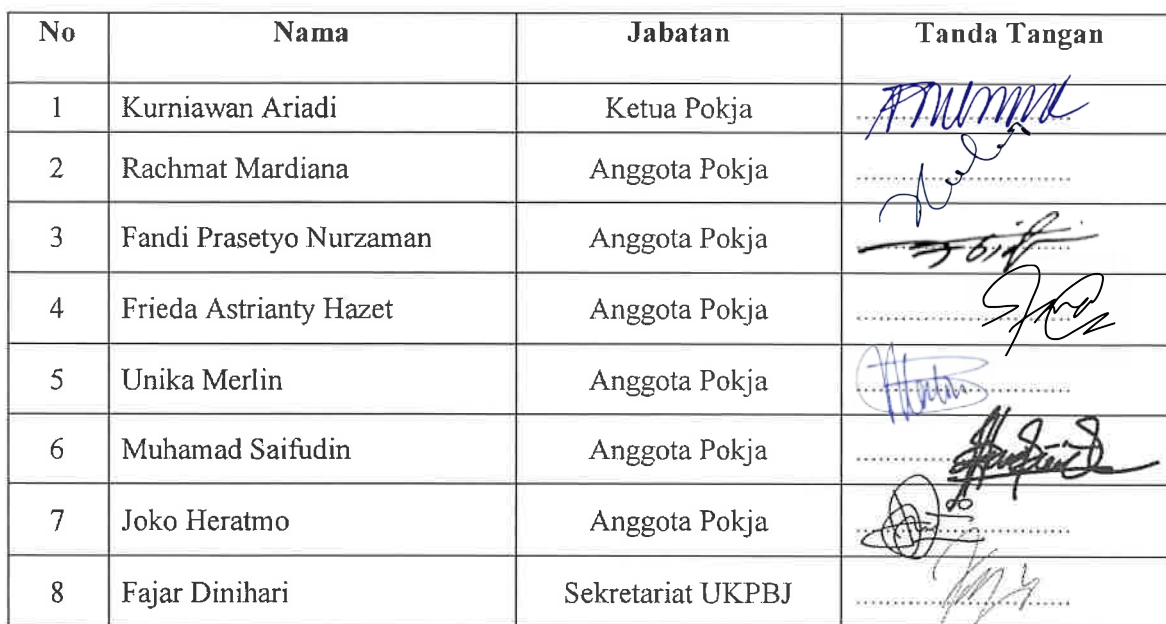 No Nama Jabatan Tanda Tangan
1 Kurniawan Ariadi Ketua Pokja
2 Rachmat Mardiana Anggota Pokja
3 Fandi Prasetyo Nurzaman Anggota Pokja
4 Frieda Astrianty Hazet Anggota Pokja
5 Unika Merlin Anggota Pokja
6 Muhamad Saifudin Anggota Pokja
7 Joko Heratmo Anggota Pokja
8 Fajar Dinihari Sekretariat UKPBJ